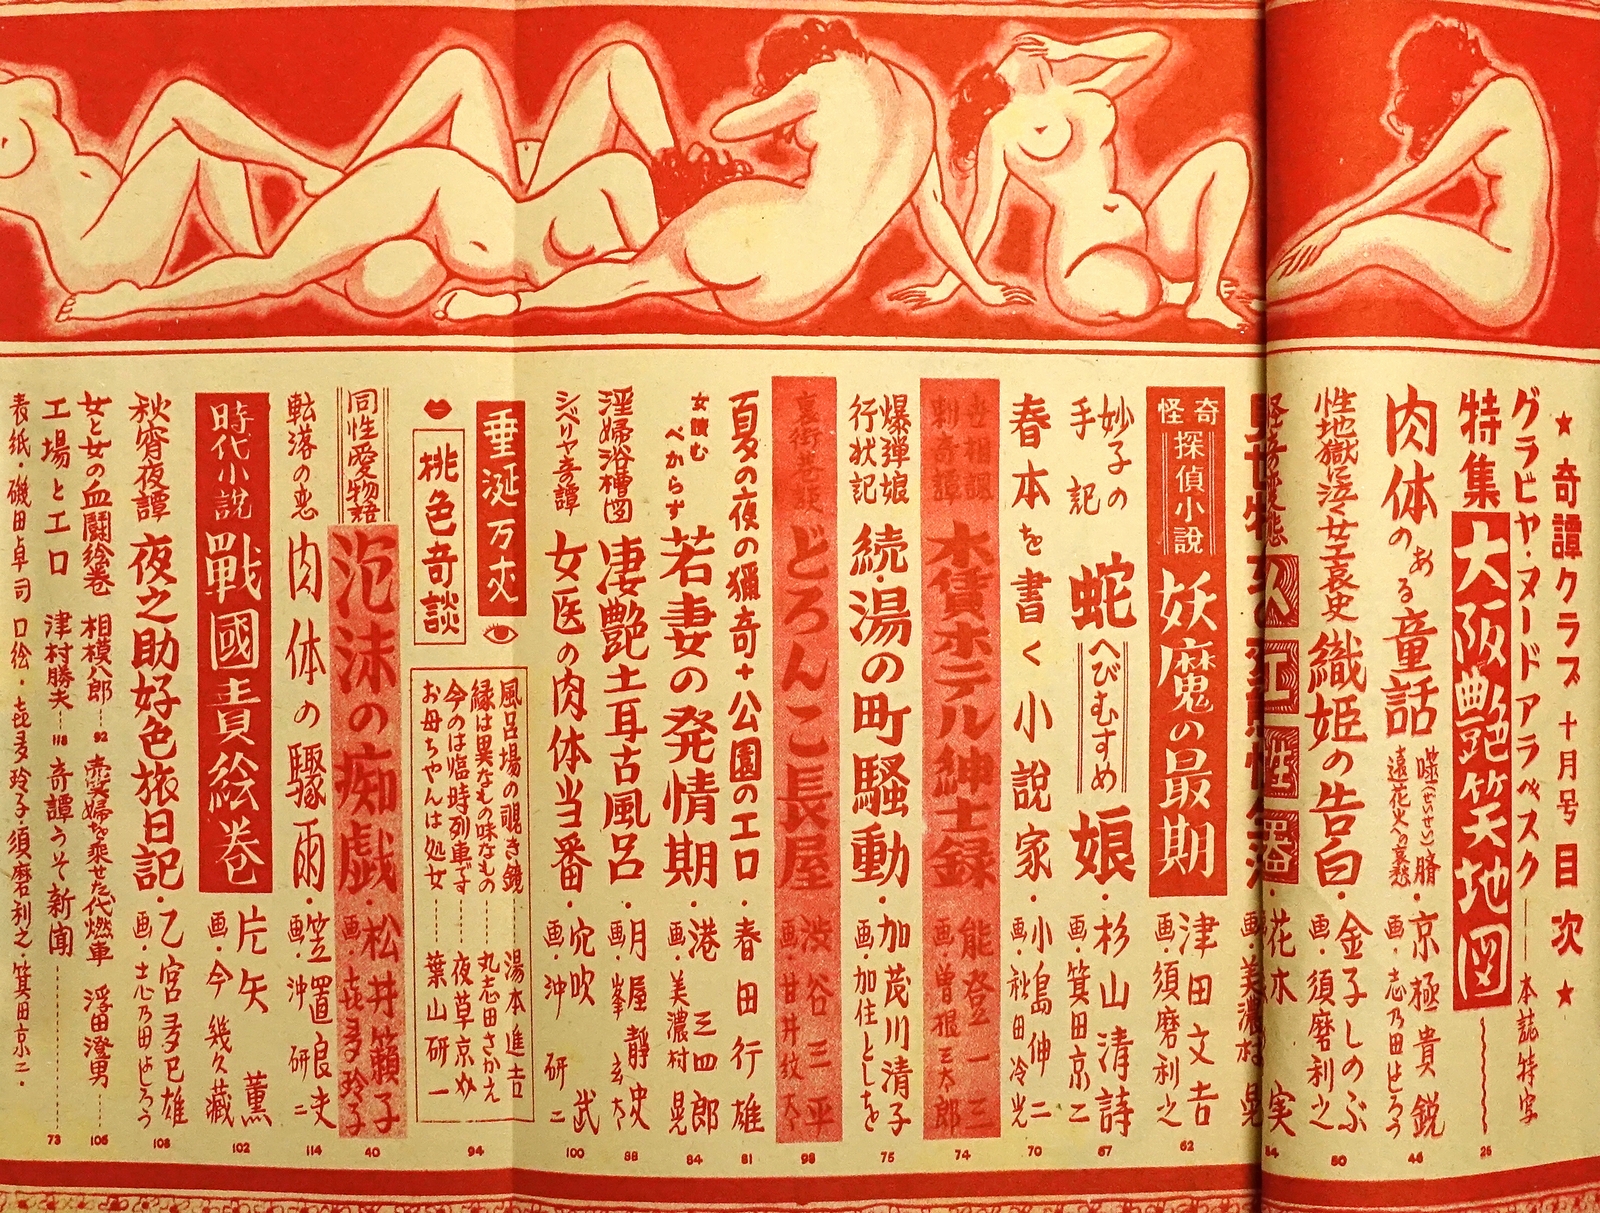 ★ 奇譚クラブ 十月号 目次 ★
グラビヤ・ヌードアラベスク―本誌特写
特集 大阪艶笑地図 26
肉体のある童話
・京極貴鋭
画・志乃田はじろう
46
性地獄に泣く女工哀史
織姫の告白・金子しのぶ
画・須磨利之
50
花木 実
画・美濃村 晃
54
怪奇探偵小説
妖魔の最期
津田文吉
画・須磨利之
62
妙子の手記
蛇娘・杉山清詩
へびむすめ
画・箕田京二
67
春本を書く小説家・小島伸二
画・秋田冷光
70
世相諷刺奇譚
木賃ホテル紳士録
能登一三
画・曽根三太郎
74
爆弾娘行状記
続・湯の町騒動・加茂川清子
画・加住としを
75
裏街巷談
どろんこ長屋
渋谷三平
画・甘井紋太
98
夏の夜の猟奇+公園のエロ・春田行雄
81
女読むべからず
若妻の発情期・港 三四郎
画・美濃村 晃
84
淫婦浴槽図
凄艶土耳古風呂・月屋静史
画・峯 玄太
88
シベリヤ奇譚
女医の肉体当番・穴吹 武
画・沖 研二
100
垂涎万丈
桃色奇談
風呂場の覗き鏡……湯本進吉
縁は異なもの味なもの……丸志田さかえ
今のは臨時列車です……夜草京妙
お母ちゃんは処女……葉山研一
94
同性愛物語
泡沫の痴戯・松井籟子
画・喜多玲子
40
転落の恋
肉体の驟雨・笠置良夫
画・沖 研二
114
時代小説
戰國責絵巻
片矢 薫
画・今 幾久藏
102
秋宵夜譚
夜之助好色旅日記・乙宮多巳雄
画・志乃田はじろう
108
女と女の血闘絵巻 相模八郎…92 売笑婦を乗せた代燃車 浮田澄男…106
工場とエロ 津村勝夫…118 奇譚うそ新聞…73
表紙・磯田卓司 口絵・喜多玲子 須磨利之・箕田京二・